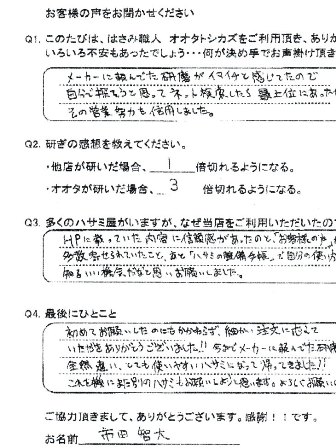 お客様の声をお聞かせください
Q1. このたびは、はさみ職人 オオタトシカズをご利用頂き、あり
いろいろ不安もあったでしょう・・・何が決め手でお声掛け頂き
メーカーに頼んでた研磨がイマイチと感じてたので
自分で探そうと思ってネット検索したら 最上位にあった
その営業努力も信用しました。
Q2. 研ぎの感想を教えてください。
・他店が研いだ場合、 1 倍切れるようになる。
・オオタが研いだ場合、 3 倍切れるようになる。
Q3. 多くのハサミ屋がいますが、なぜ当店をご利用いただいたの
HPに載っていた内容に信頼感があったのと、「お客様の声」
多数寄せられていたこと、あと「ハサミの 」で自分の使い方
知るいい機会だなと思いお願いしました。
Q4. 最後にひとこと
初めてお願いしたのにもかかわらず、細かい注文に応えて
いただきありがとうございました!! 今までメーカーに頼んでた研磨
全然違い、とても使いやすいハサミになって帰ってきました!!
これを機にまた別のハサミもお願いしようと思います。よろしくお願い
ご協力頂きまして、ありがとうございます。感謝!!です。
お名前 市田 智大